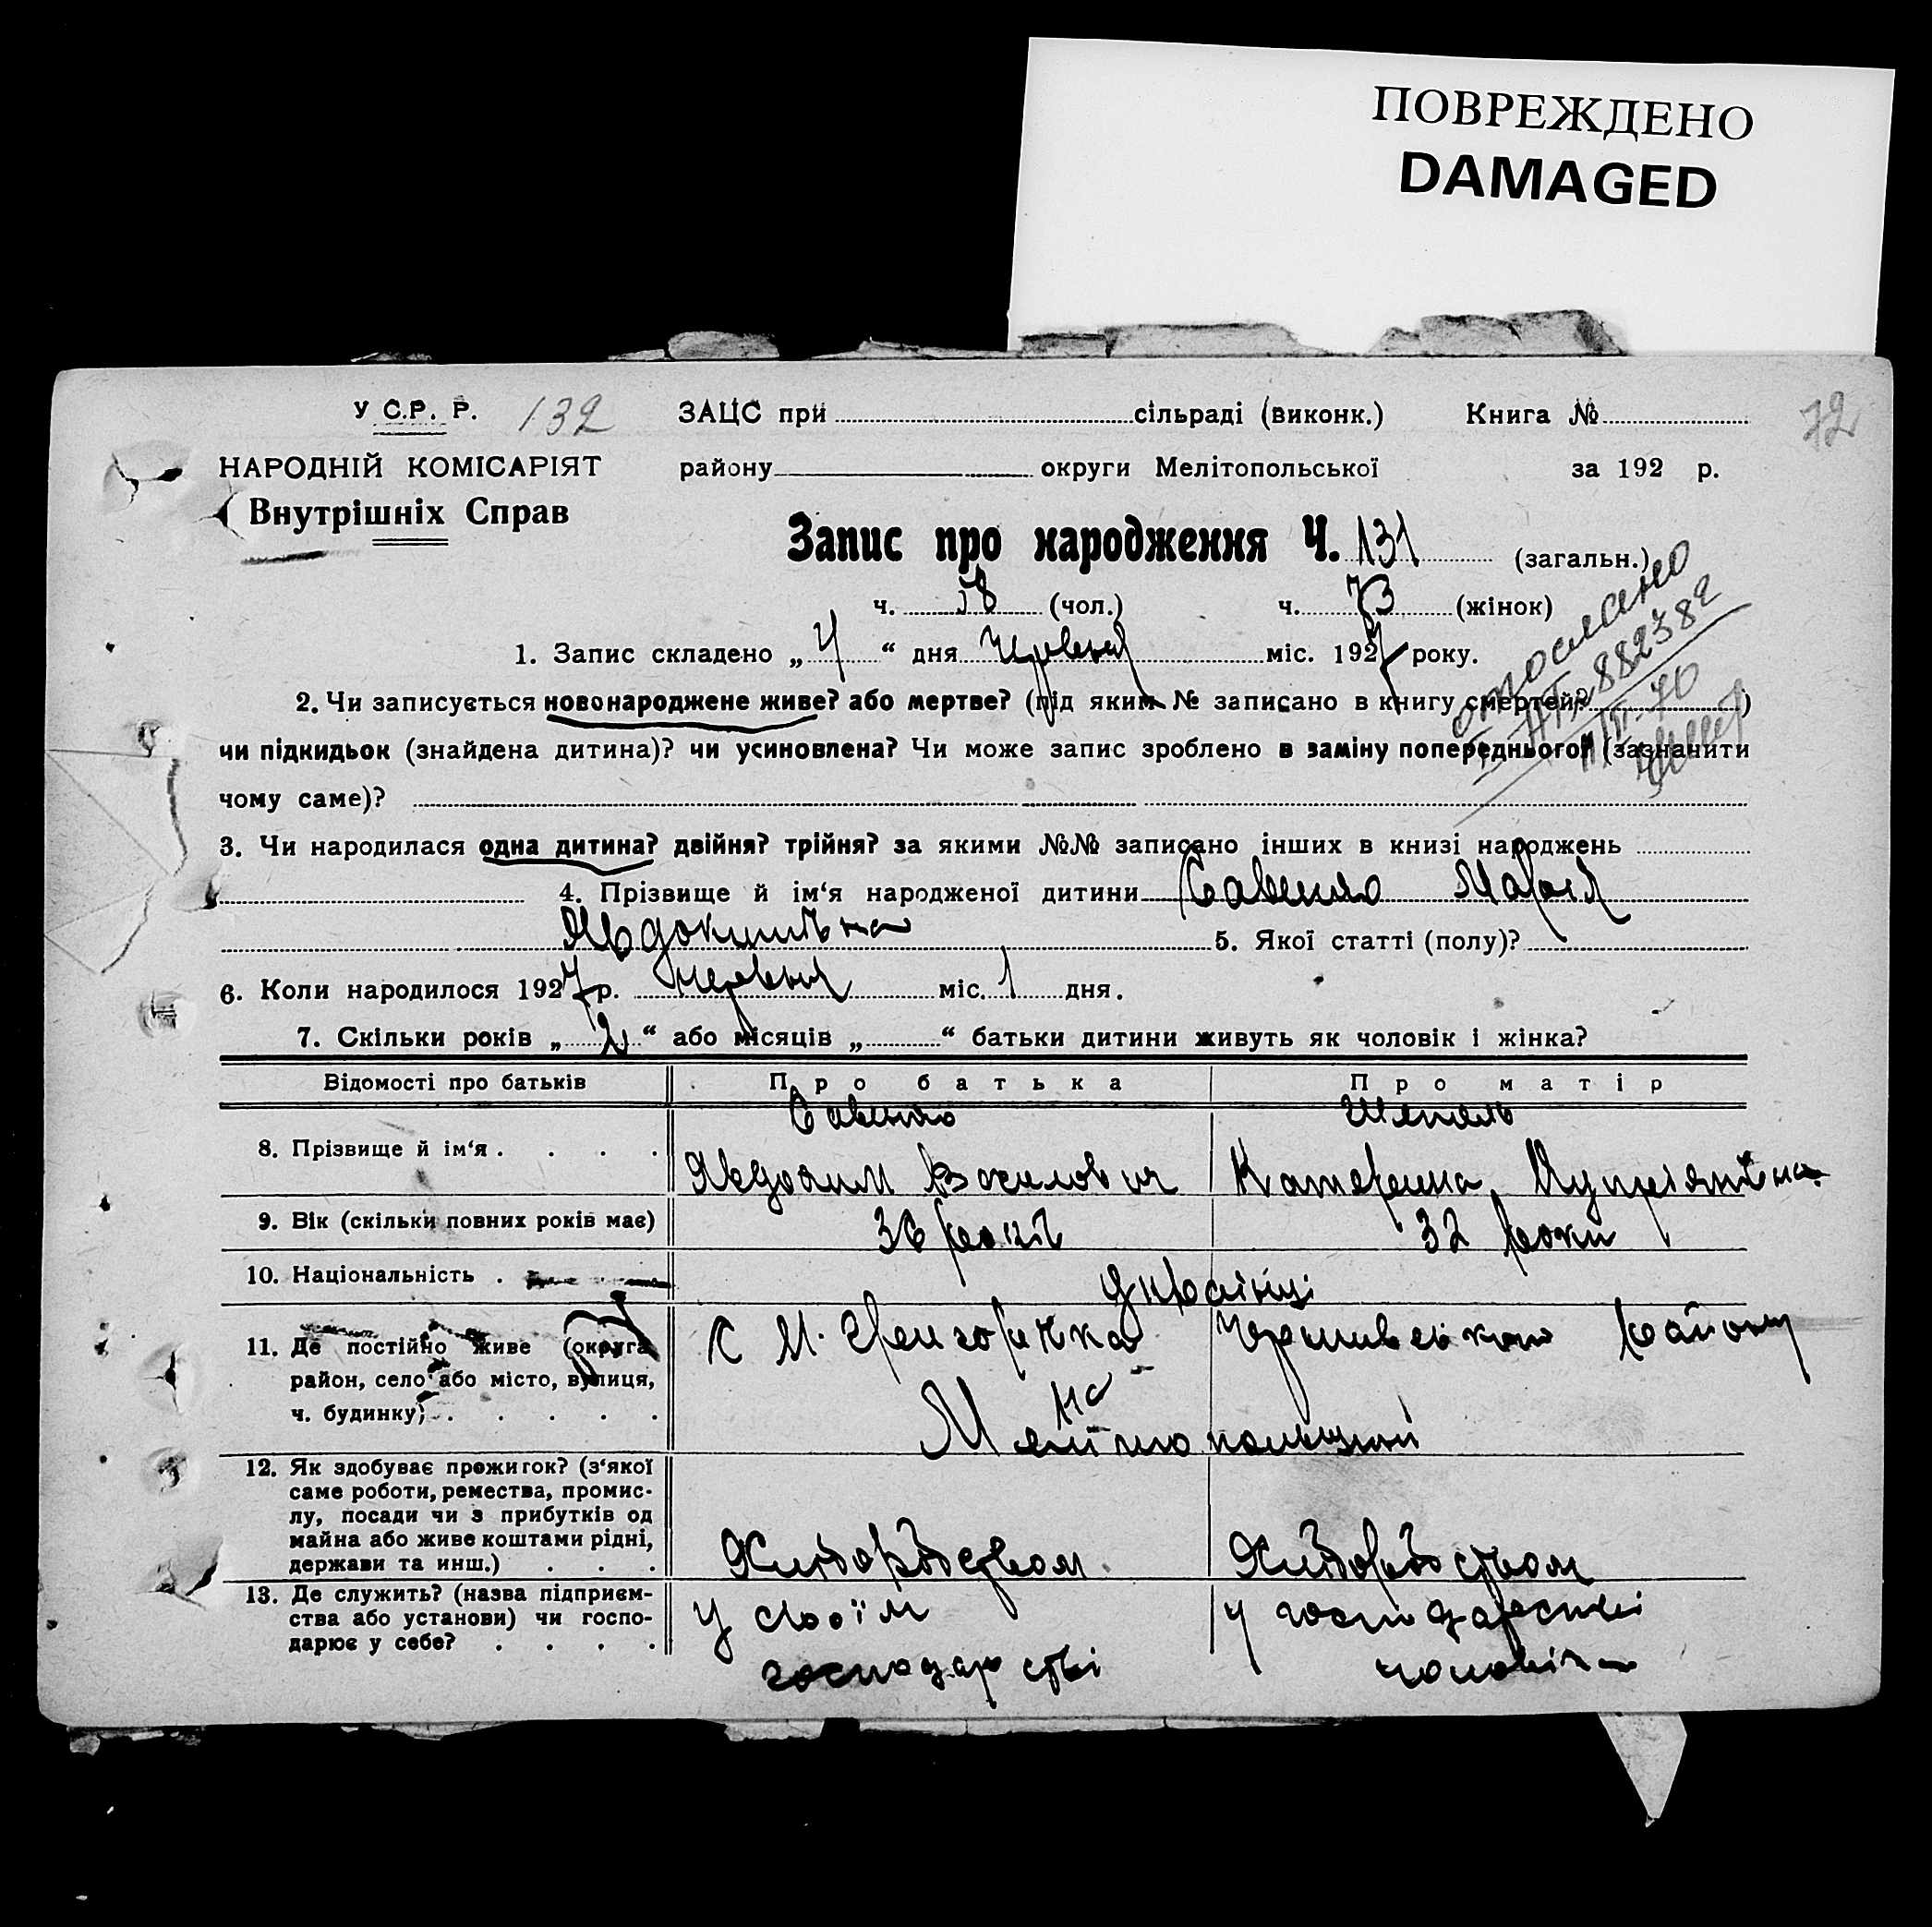 ПОВРЕЖДЕНО
DAMAGED
У С.Р. Р. 132 ЗАЦС при сільраді (виконк.) Книга № 72
НАРОДНІЙ КОМІСАРІЯТ району округи Мелітопольської за 192 р.
Внутрішніх Справ
Запис про народження Ч. 131 (загальн.)
ч. 58 (чол.) ч. 73 (жінок)
1. Запис складено „ 4 “ дня Червня міс. 1927 року.
2. Чи записується новонароджене живе? або мертве? (під яким № записано в книгу смертей? )
чи підкидьок (знайдена дитина)? чи усиновлена? Чи може запис зроблено в заміну попереднього? (зазначити
чому саме)?
3. Чи народилася одна дитина? двійня? трійня? за якими №№ записано інших в книзі народжень
4. Прізвище й ім‘я народженої дитини Савенко Марія
Явдокимівна 5. Якої статті (полу)?
6. Коли народилося 1927 р. червня міс. 1 дня.
7. Скільки років „ 2 “ або місяців „ “ батьки дитини живуть як чоловік і жінка?
882382
Відомості про батьків Про батька Про матір
Савенко Шепель
8. Прізвище й ім‘я . . . . Явдоким Катерина
9. Вік (скільки повних років має) 36 років 32 роки
10. Національність . Українці
11. Де постійно живе (округа, с М. Григорівка Чернивського району
район, село або місто, вулиця, на
ч. будинку) . . . . . Мелітопольщині
12. Як здобуває прожиток? (з‘якої
саме роботи, ремества, промис-
лу, посади чи з прибутків од
майна або живе коштами рідні, Хліборобством Хліборобством
держави та инш.) . . .
13. Де служить? (назва підприєм- у своїм у господарстві
ства або установи) чи госпо-
дарює у себе? . . . . господарстві чоловіка